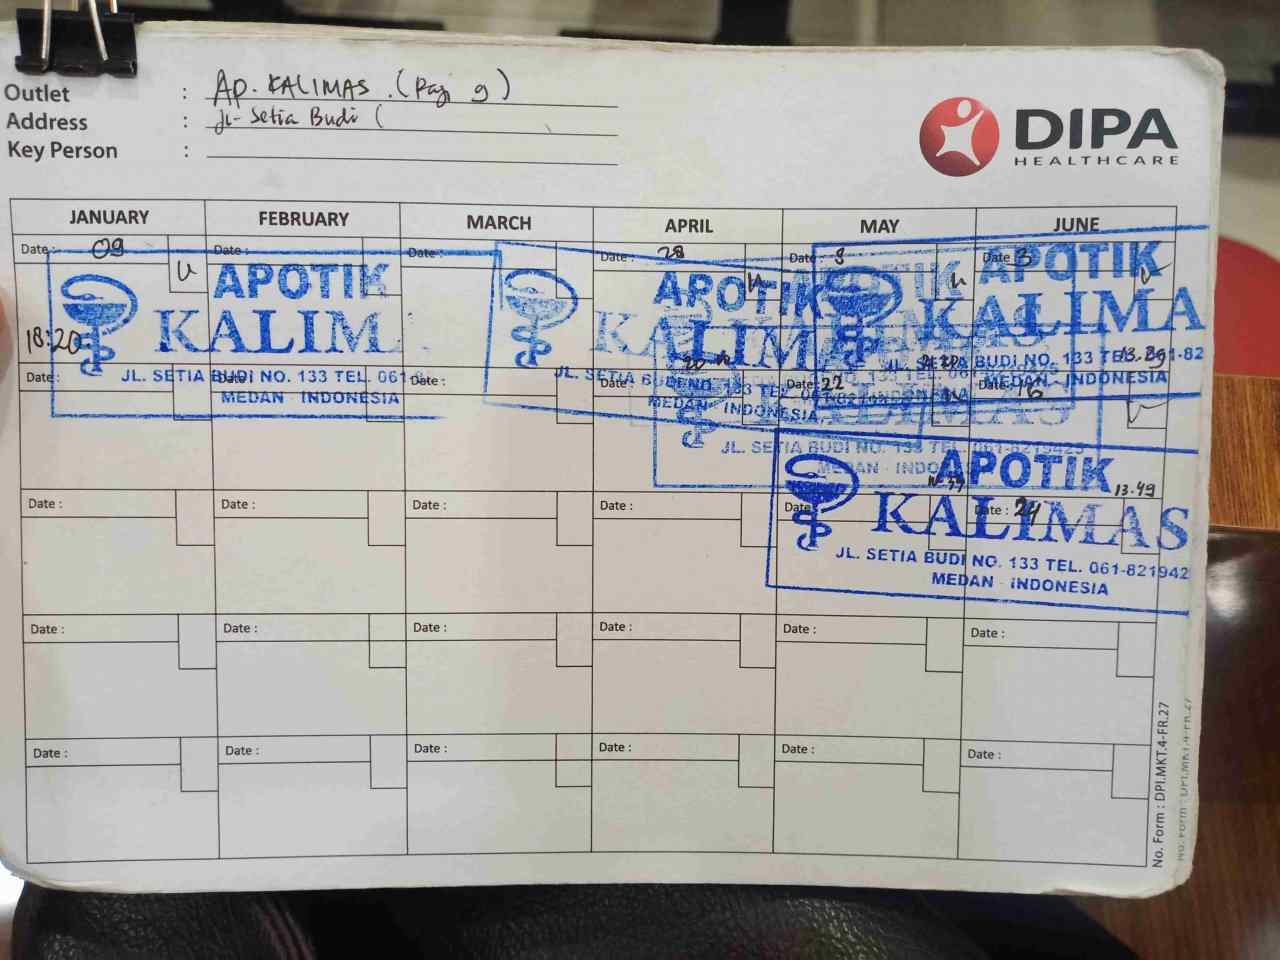 Outlet : Ap. KALIMAS (Pagi 9)
Address : Jl- Setia Budi (
Key Person :
DIPA
HEALTHCARE
JANUARY FEBRUARY MARCH APRIL MAY JUNE
Date : 09 Date : Date : Date : 28 Date : 9 Date : 3
APOTIK
KALIM
18:20
JL. SETIA BUDI NO. 133 TEL. 061-8
MEDAN - INDONESIA
APOTIK
KALIMAS
MEDAN - INDONESIA
APOTIK
KALIMA
BUDI NO. 133 TEL. 061-82
13.39
MEDAN - INDONESIA
Date : Date : Date : Date : 20 Date : 22 Date : 16
KALIMAS
JL. SETIA BUDI NO. 133 TEL. 061-8219425
MEDAN - INDO
APOTIK
13.49
KALIMAS
JL. SETIA BUDI NO. 133 TEL. 061-821942
MEDAN - INDONESIA
Date : Date : Date : Date : Date : Date : 24
Date : Date : Date : Date : Date : Date :
Date : Date : Date : Date : Date : Date :
No. Form : DPI.MKT.4-FR.27
No. Form : DPI.MKT.4-FR.27